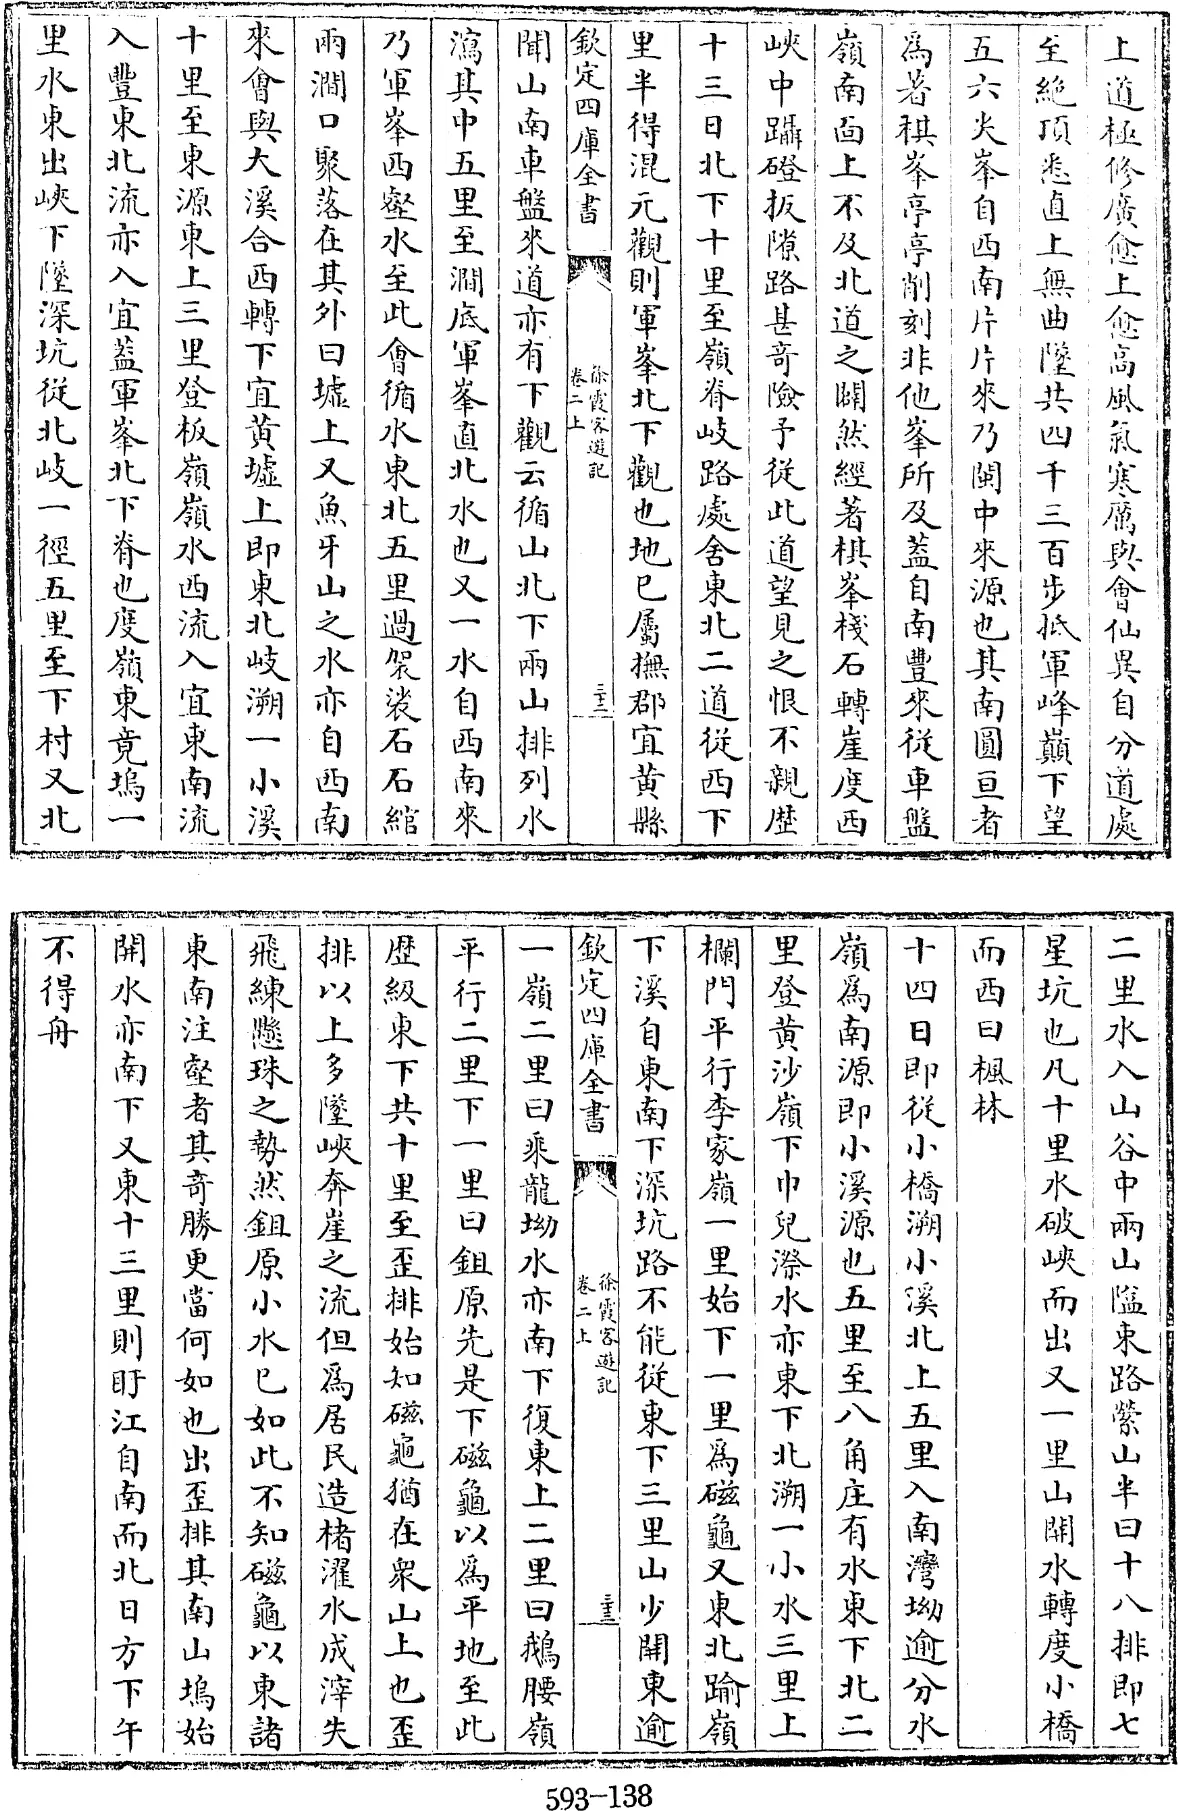 上道極修廣愈上愈高風氣寒厲與會仙異自分道處
至絶頂悉直上無曲墜共四千三百步抵軍峰巔下望
五六尖峯自西南片片來乃閩中來源也其南圓亘者
爲著棋峯亭亭削刻非他峯所及蓋自南豐來從車盤
嶺南面上不及北道之闢然經著棋峯棧石轉崖度西
峽中躡磴扳隙路甚奇險予從此道望見之恨不親歴
十三日北下十里至嶺脊岐路處舍東北二道從西下
里半得混元觀則軍峯北下觀也地已屬撫郡宜黃縣
欽定四庫全書
徐霞客遊記
卷二上
三十三
聞山南車盤來道亦有下觀云循山北下兩山排列水
瀉其中五里至澗底軍峯直北水也又一水自西南來
乃軍峯西壑水至此會循水東北五里過袈裟石石綰
兩澗口聚落在其外曰墟上又魚牙山之水亦自西南
來會與大溪合西轉下宜黃墟上即東北岐溯一小溪
十里至東源東上三里登板嶺嶺水西流入宜東南流
入豐東北流亦入宜蓋軍峯北下脊也度嶺東竟塢一
里水東出峽下墜深坑從北岐一徑五里至下村又北
二里水入山谷中兩山隘束路縈山半曰十八排即七
星坑也凡十里水破峽而出又一里山開水轉度小橋
而西曰楓林
十四日即從小橋溯小溪北上五里入南灣坳逾分水
嶺爲南源即小溪源也五里至八角庄有水東下北二
里登黃沙嶺下巾兒漈水亦東下北溯一小水三里上
欄門平行李家嶺一里始下一里爲磁龜又東北踰嶺
下溪自東南下深坑路不能從東下三里山少開東逾
欽定四庫全書
徐霞客遊記
卷二上
三十三
一嶺二里曰乘龍坳水亦南下復東上二里曰鵝腰嶺
平行二里下一里曰鉏原先是下磁龜以爲平地至此
歴級東下共十里至歪排始知磁龜猶在衆山上也歪
排以上多墜峽奔崖之流但爲居民造楮濯水成滓失
飛練懸珠之勢然鉏原小水已如此不知磁龜以東諸
東南注壑者其奇勝更當何如也出歪排其南山塢始
開水亦南下又東十三里則盱江自南而北日方下午
不得舟
593-138